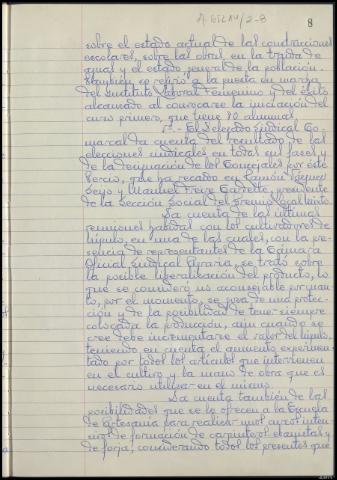 A GILAV/2-8
8
sobre el estado actual de las construcciones
escolares, sobre las obras, en la traída de
aguas y el estado general de la población.
También se refirió a la puesta en marcha
del Instituto Laboral Femenino y del éxito
alcanzado al convocarse la iniciación del
curso primero, que tiene 30 alumnas.
5º.- El Delegado Sindical Co-
marcal da cuenta del resultado de las
elecciones sindicales en todas sus fases y
de la designación de los Concejales por este
Tercio, que ha recaído en Ramón
Seijo y Manuel Freire Gardette, presidente
de la Sección Social del Gremio Sindical Mixto
Da cuenta de las últimas
reuniones habidas con los cultivadores de
lúpulo, en una de las cuales, con la pre-
sencia de representantes de la Cámara
Oficial Sindical Agraria, se trató sobre
la posible liberalización del producto, lo
que se consideró no aconsejable por cuan-
to, por el momento, se goza de una protec-
ción y de la posibilidad de tener siempre
colocada la producción, aun cuando se
cree debe incrementarse el valor del lúpulo,
teniendo en cuenta el aumento experimen-
tado por todos los artículos que intervienen
en el cultivo y la mano de obra que es
necesario utilizar en el mismo.
Da cuenta también de las
posibilidades que se le ofrecen a la Escuela
de Artesanía para realizar unos cursos inten-
sivos de formación de carpinteros ebanistas y
de forja, considerando todos los presentes que